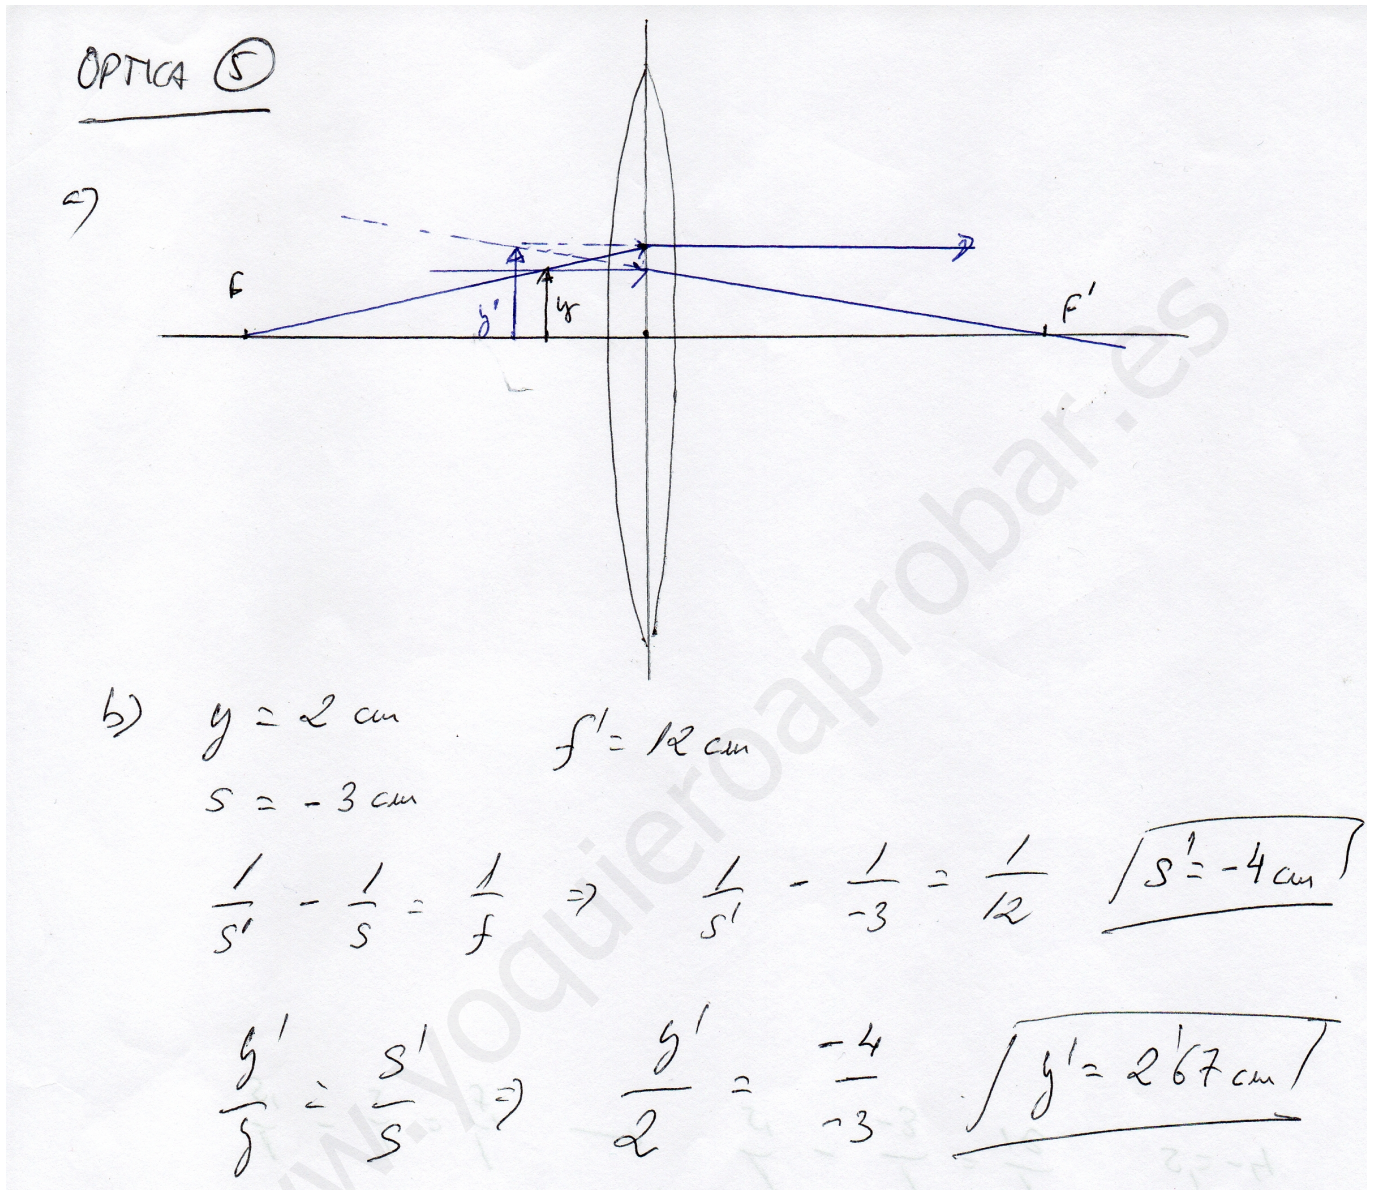 OPTICA 5
a)
F
y'
y
F'
b) y = 2 cm
f' = 12 cm
s = -3 cm
1/s' - 1/s = 1/f => 1/s' - 1/-3 = 1/12 s' = -4 cm
y'/y = s'/s => y'/2 = -4/-3 y' = 2'67 cm
www.yoquieroaprobar.es